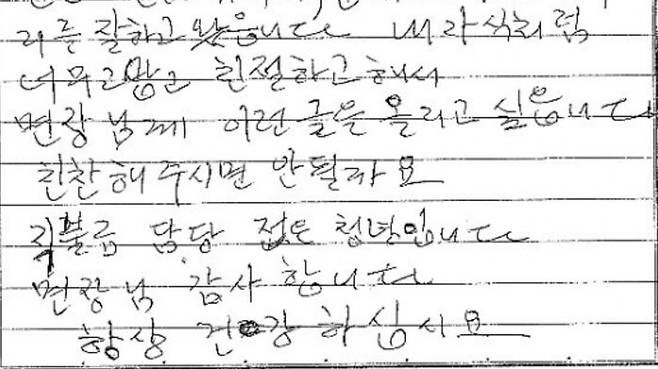 리를 잘하고 왔읍니다 내라식처럼
너무고맙고 친절하고해서
면장님께 이런 글을 올리고 싶읍니다
친찬해주시면 안될까요
직불금 담당 젊은 청년입니다
면장님 감사 합니다
항상 건강 하십시요